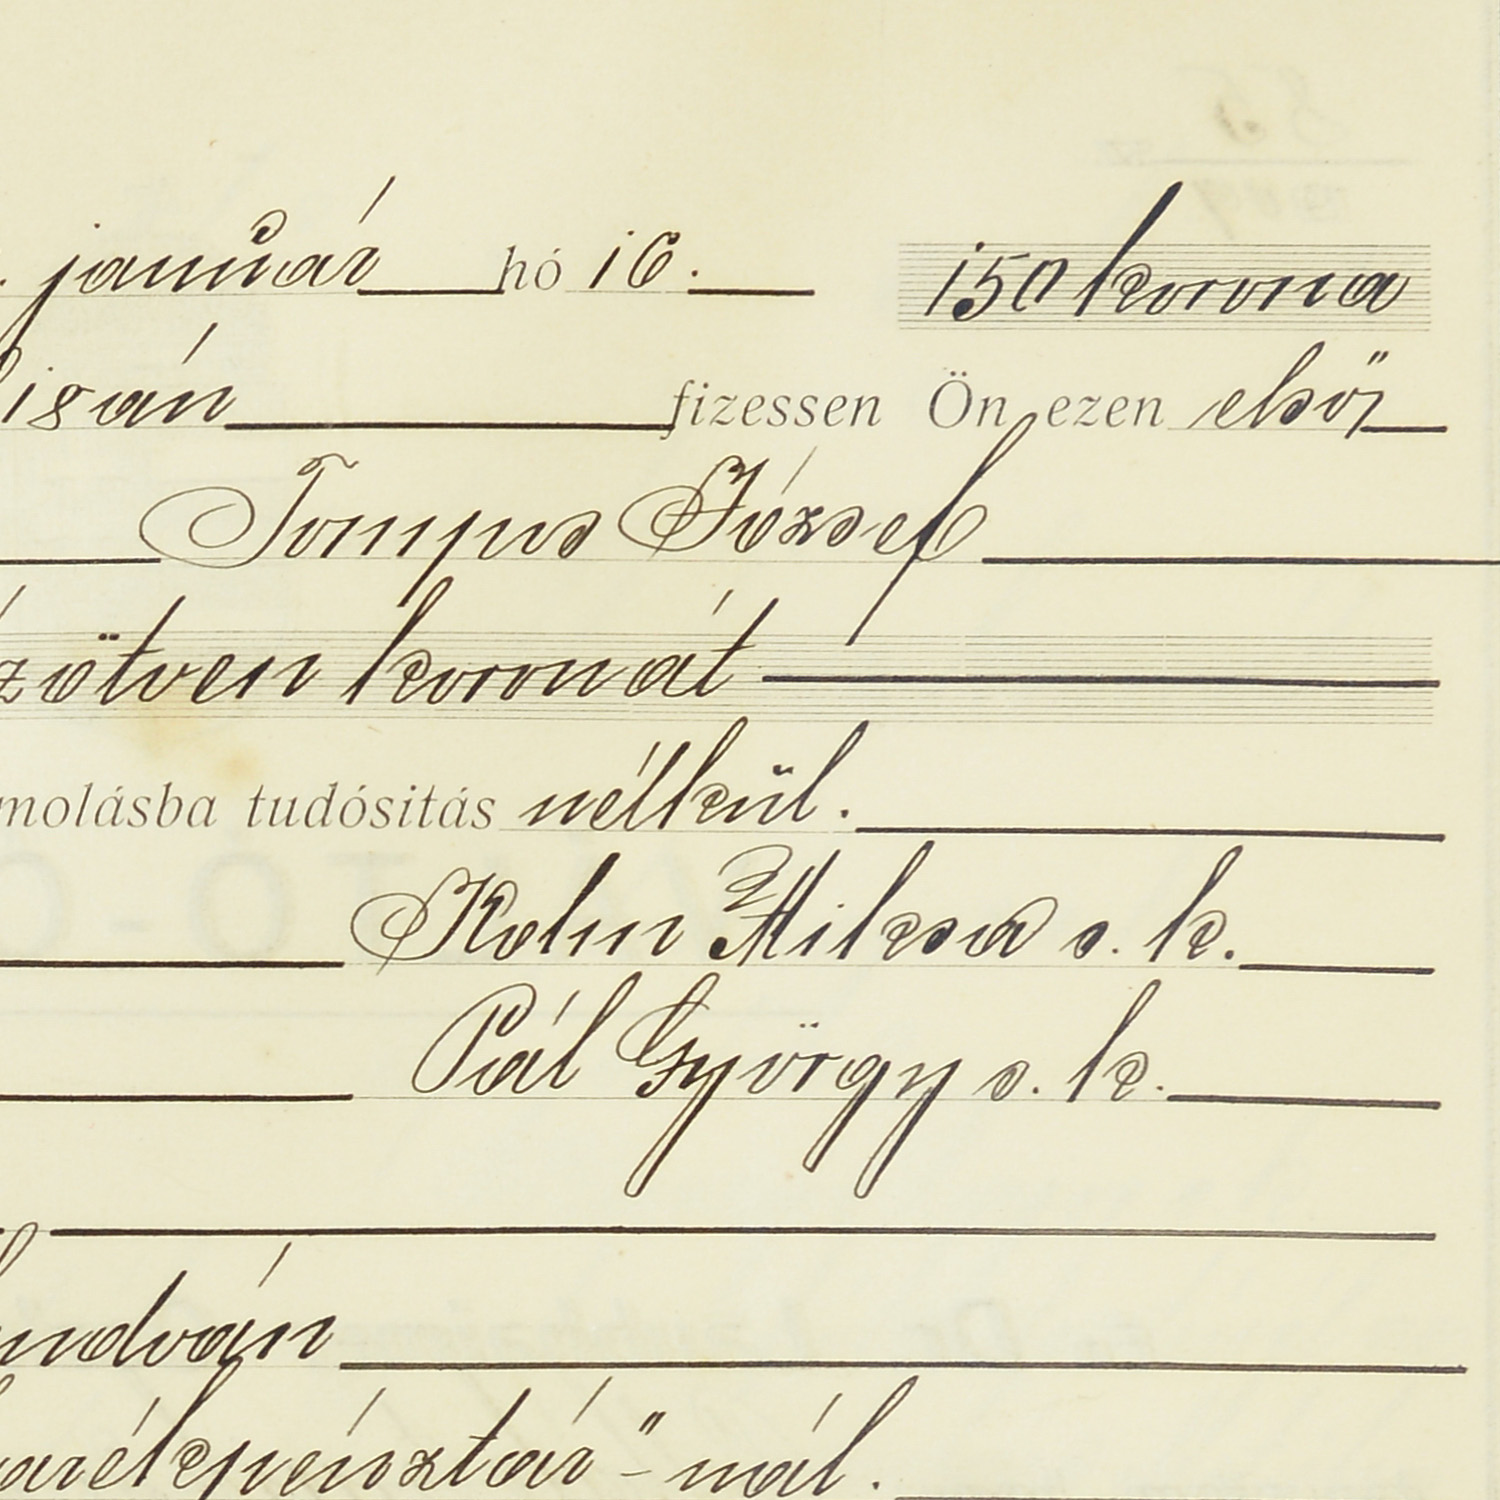 . január hó 16. 150 korona
fizessen Ön ezen első
Tompos József
zötven koronát
molásba tudósitás nélkül.
Kohn Miksa s. k.
Pál György s. k.
arékpénztár"-nál.